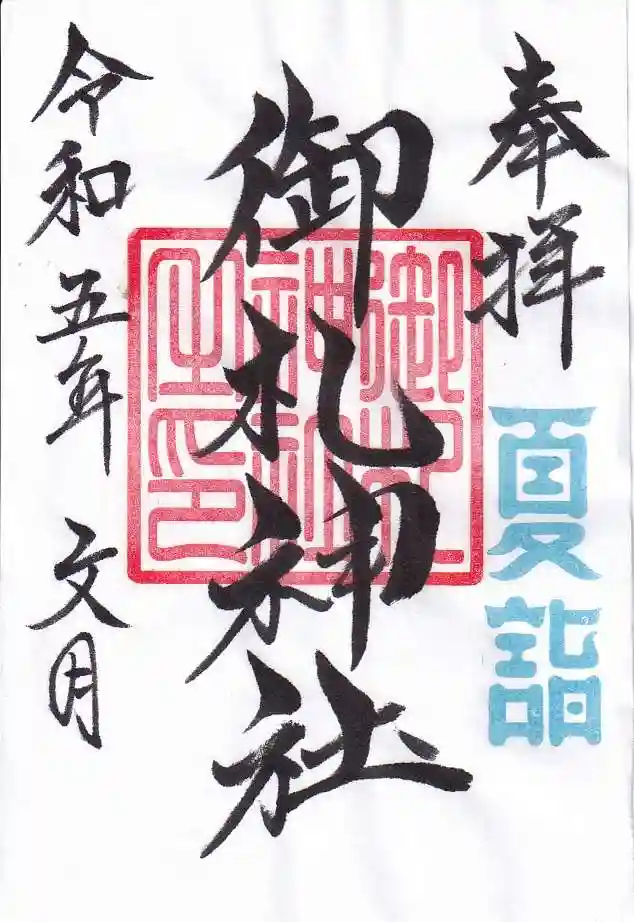 奉拝
夏詣
御札神社
御札神社之印
令和五年文月